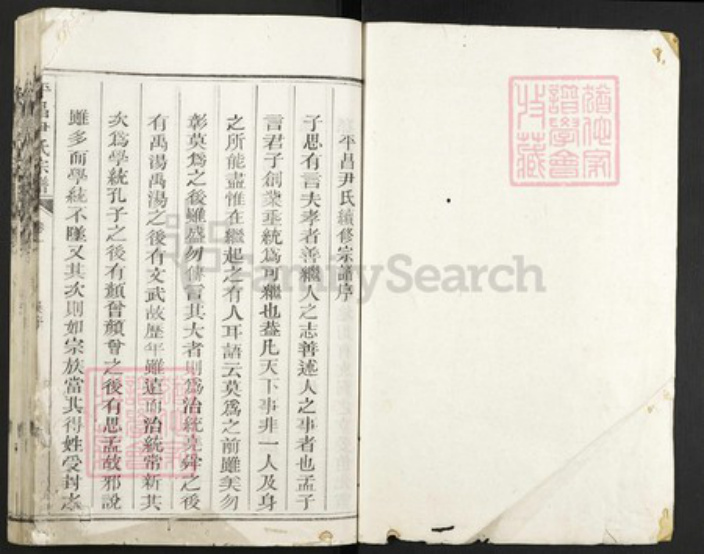 平昌尹氏續修宗譜序
子思有言夫孝者善繼人之志善述人之事者也孟子
言君子創業垂統爲可繼也蓋凡天下事非一人及身
之所能盡惟在繼起之有人耳語云莫爲之前雖美勿
彰莫爲之後雖盛勿傳言其大者則爲治統堯舜之後
有禹湯禹湯之後有文武故歷年雖遠而治統常新其
次爲學統孔子之後有顏曾顏曾之後有思孟故邪說
雖多而學統不墜又其次則如宗族當其得姓受封
平昌尹氏宗譜
FamilySearch
譜學會
收藏